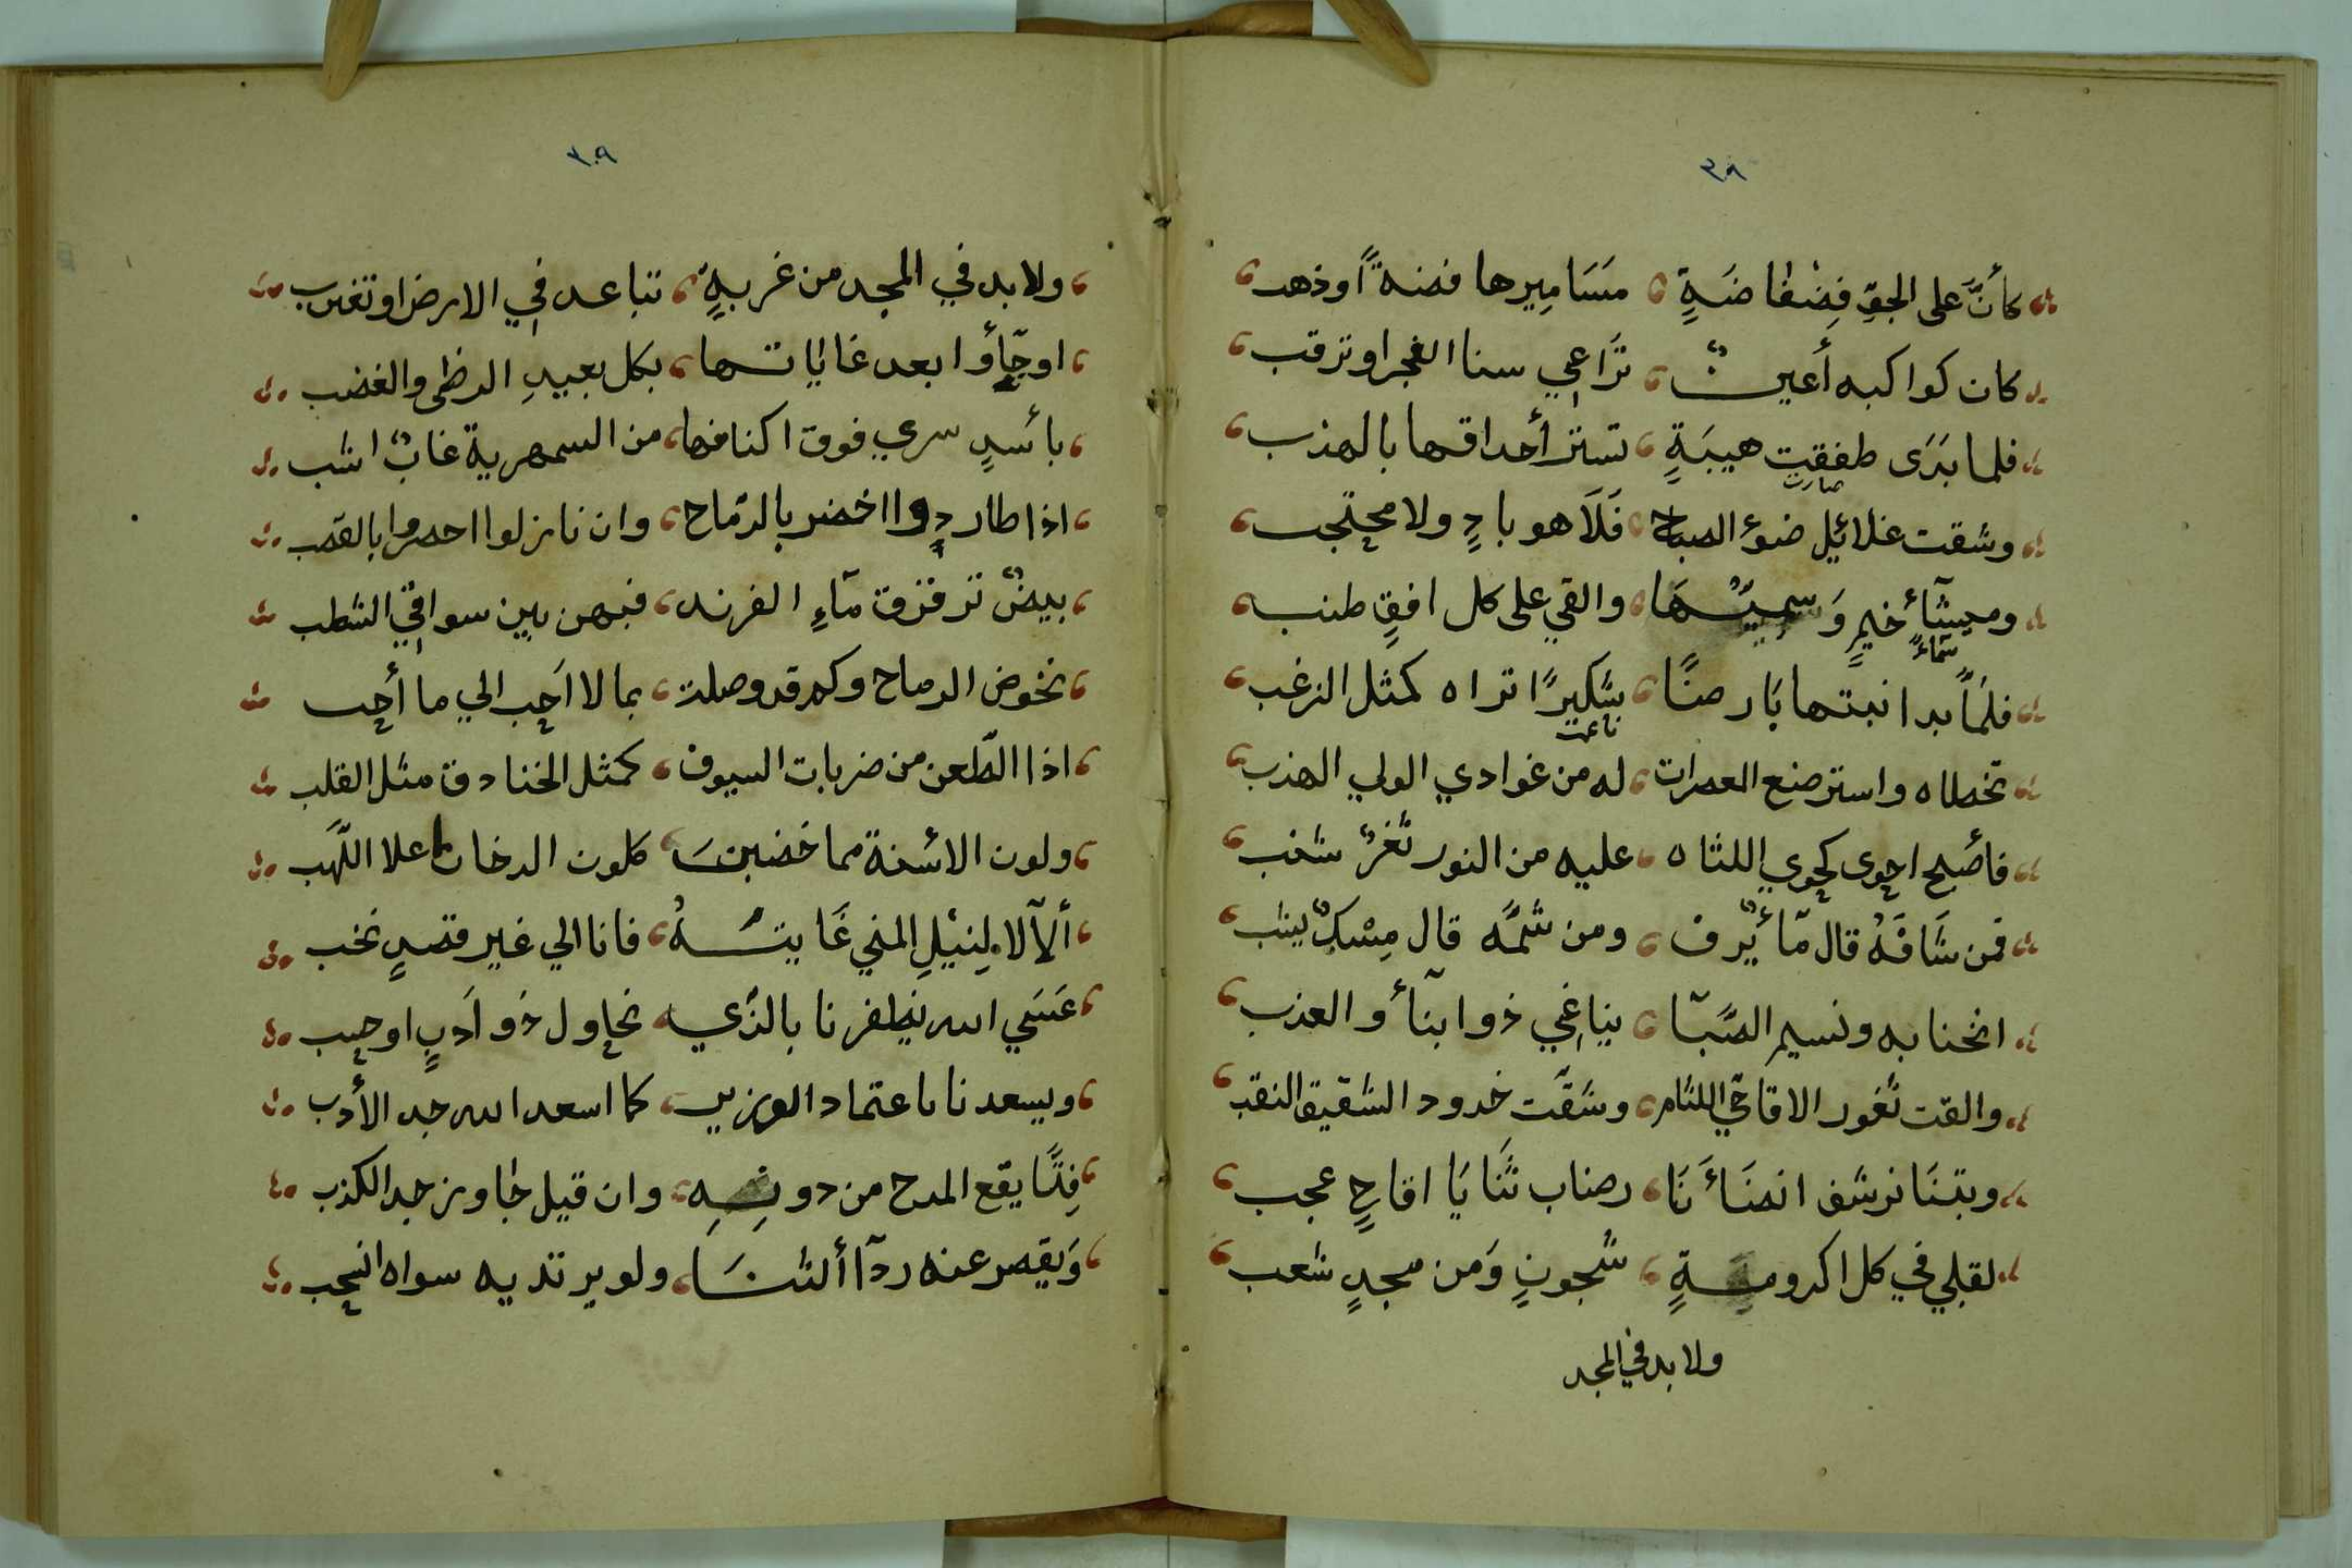 ٣٨
كأنَّ على الجوِّ فِضْفاضَةٍ مَسَامِيرها فضةً اوذهب
كان كواكبه أعينٌ تَرَاعِي سنا الفجر اوترقب
فلما بَدَى طفقت هيبَةٍ تستر أحداقها بالهذب
صارت
وشقت غلائيل ضوء الصباح فَلَا هو بادٍ ولا محتجب
وميشآءُ خيمٍ وَسميّهَا والقي على كل افقٍ طنب
سماءً
فلمّا بدا نبتها بَارضًا شكيرًا تراه كمثل الزغب
ناعت
تخطاه واسترضع العصرات له من غوادي الولي الهذب
فأصبح احوى كحوي اللثاه عليه من النور ثغرٌ شنب
فمن شَافَهُ قال مآءٌ يرف ومن شمَّه قال مِسْكٌ يشب
انخنا به ونسيم الصَّبَا يناغي ذوا بنآء والعذب
والقت ثغور الاقاحي اللثام وشقَّت خدود الشقيق النقب
وبتنَا نرشف انضَاءَنَا رضاب ثَنَايَا اقاحٍ عجب
لقلبي في كل اكرومةٍ شجونٍ وَمن مجدٍ شعب
ولا بد في المجد
٣٠٩
ولا بد في المجد من غربةٍ تباعد في الارض اوتغرب
اوجّأوا بعد غاياتها بكل بعيدِ الرضى والغضب
بأسدٍ سري فوق اكنافها من السمهرية غابٌ اشب
اذا طاردوا اخضر بالرّماح وان نازلوا احمروا بالقصب
بيضٌ ترقرق مآءِ الفرند فبهن بين سواقي الشطب
نخوض الرماح وكم قد وصلت بما لا اَحب الي ما أحب
اذا الطّعن من ضربات السيوف كمثل الخنادق مثل القلب
ولون الاسْنة مما خضبنَ كلون الدخان علا اللّهَب
ألآ لا لِنيْلِ المني غَايتهُ فانا الي غير قصدٍ نخب
عَسَي الله يظفرنا بالذّي نحاول ذو اَدبٍ اوحب
ويسعدنا باعتماد الوزير كما اسعد الله جد الأدب
فتًا يقع المدح من دونِهِ وان قيل جَاوز جد الكذب
وَيقصر عنه ردآ ألثنَا ولو يرتديه سواه انسحب